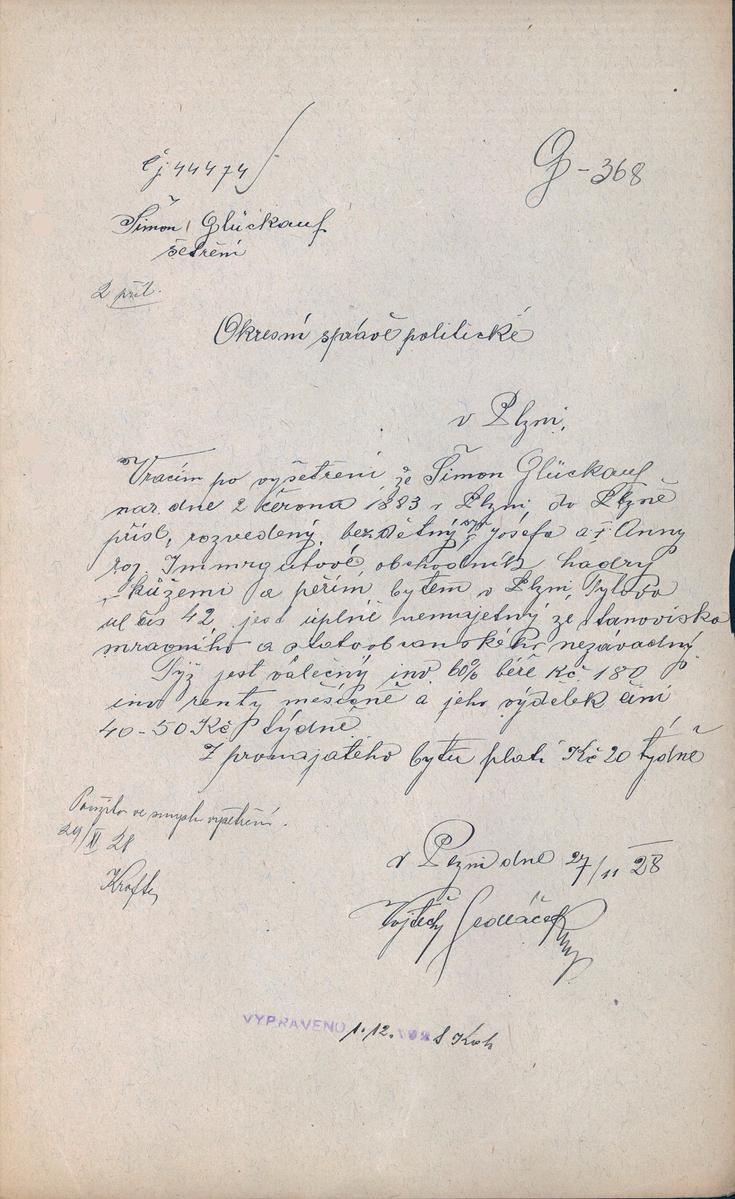 Čj 44474
G-368
Šimon Glückauf
šetření
2 příl.
Okresní správě politické
v Plzni.
Vracím po vyšetření, že Šimon Glückauf
nar. dne 2 června 1883 v Plzni, do Plzně
přísl, rozvedený, bezdětný, syn Josefa a Anny
roz. Immrgutové obchodník hadry
kůžemi a peřím bytem v Plzni, Tylova
ul čís 42, jest úplně nemajetný ze stanoviska
mravního a statoobčanského nezávadný
Týž jest válečný inv. 60% béře Kč 180
inv renty měsíčně a jeho výdělek činí
40-50 Kč týdně
Z pronajatého bytu platí Kč 20 týdně
ve smyslu vyšetření.
v Plzni dne 27/11 28
Vojtěch Sedláček
VYPRAVENO 1.12. 1928